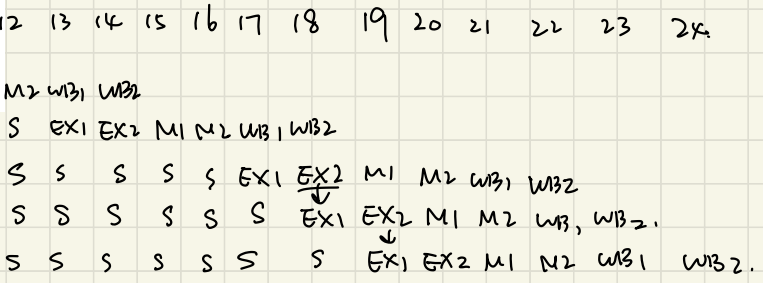 12 13 14 15 16 17 18 19 20 21 22 23 24.
M2 WB1 WB2
S EX1 EX2 M1 M2 WB1 WB2
S S S S S EX1 EX2 M1 M2 WB1 WB2
S S S S S S EX1 EX2 M1 M2 WB1 WB2.
S S S S S S S EX1 EX2 M1 M2 WB1 WB2.